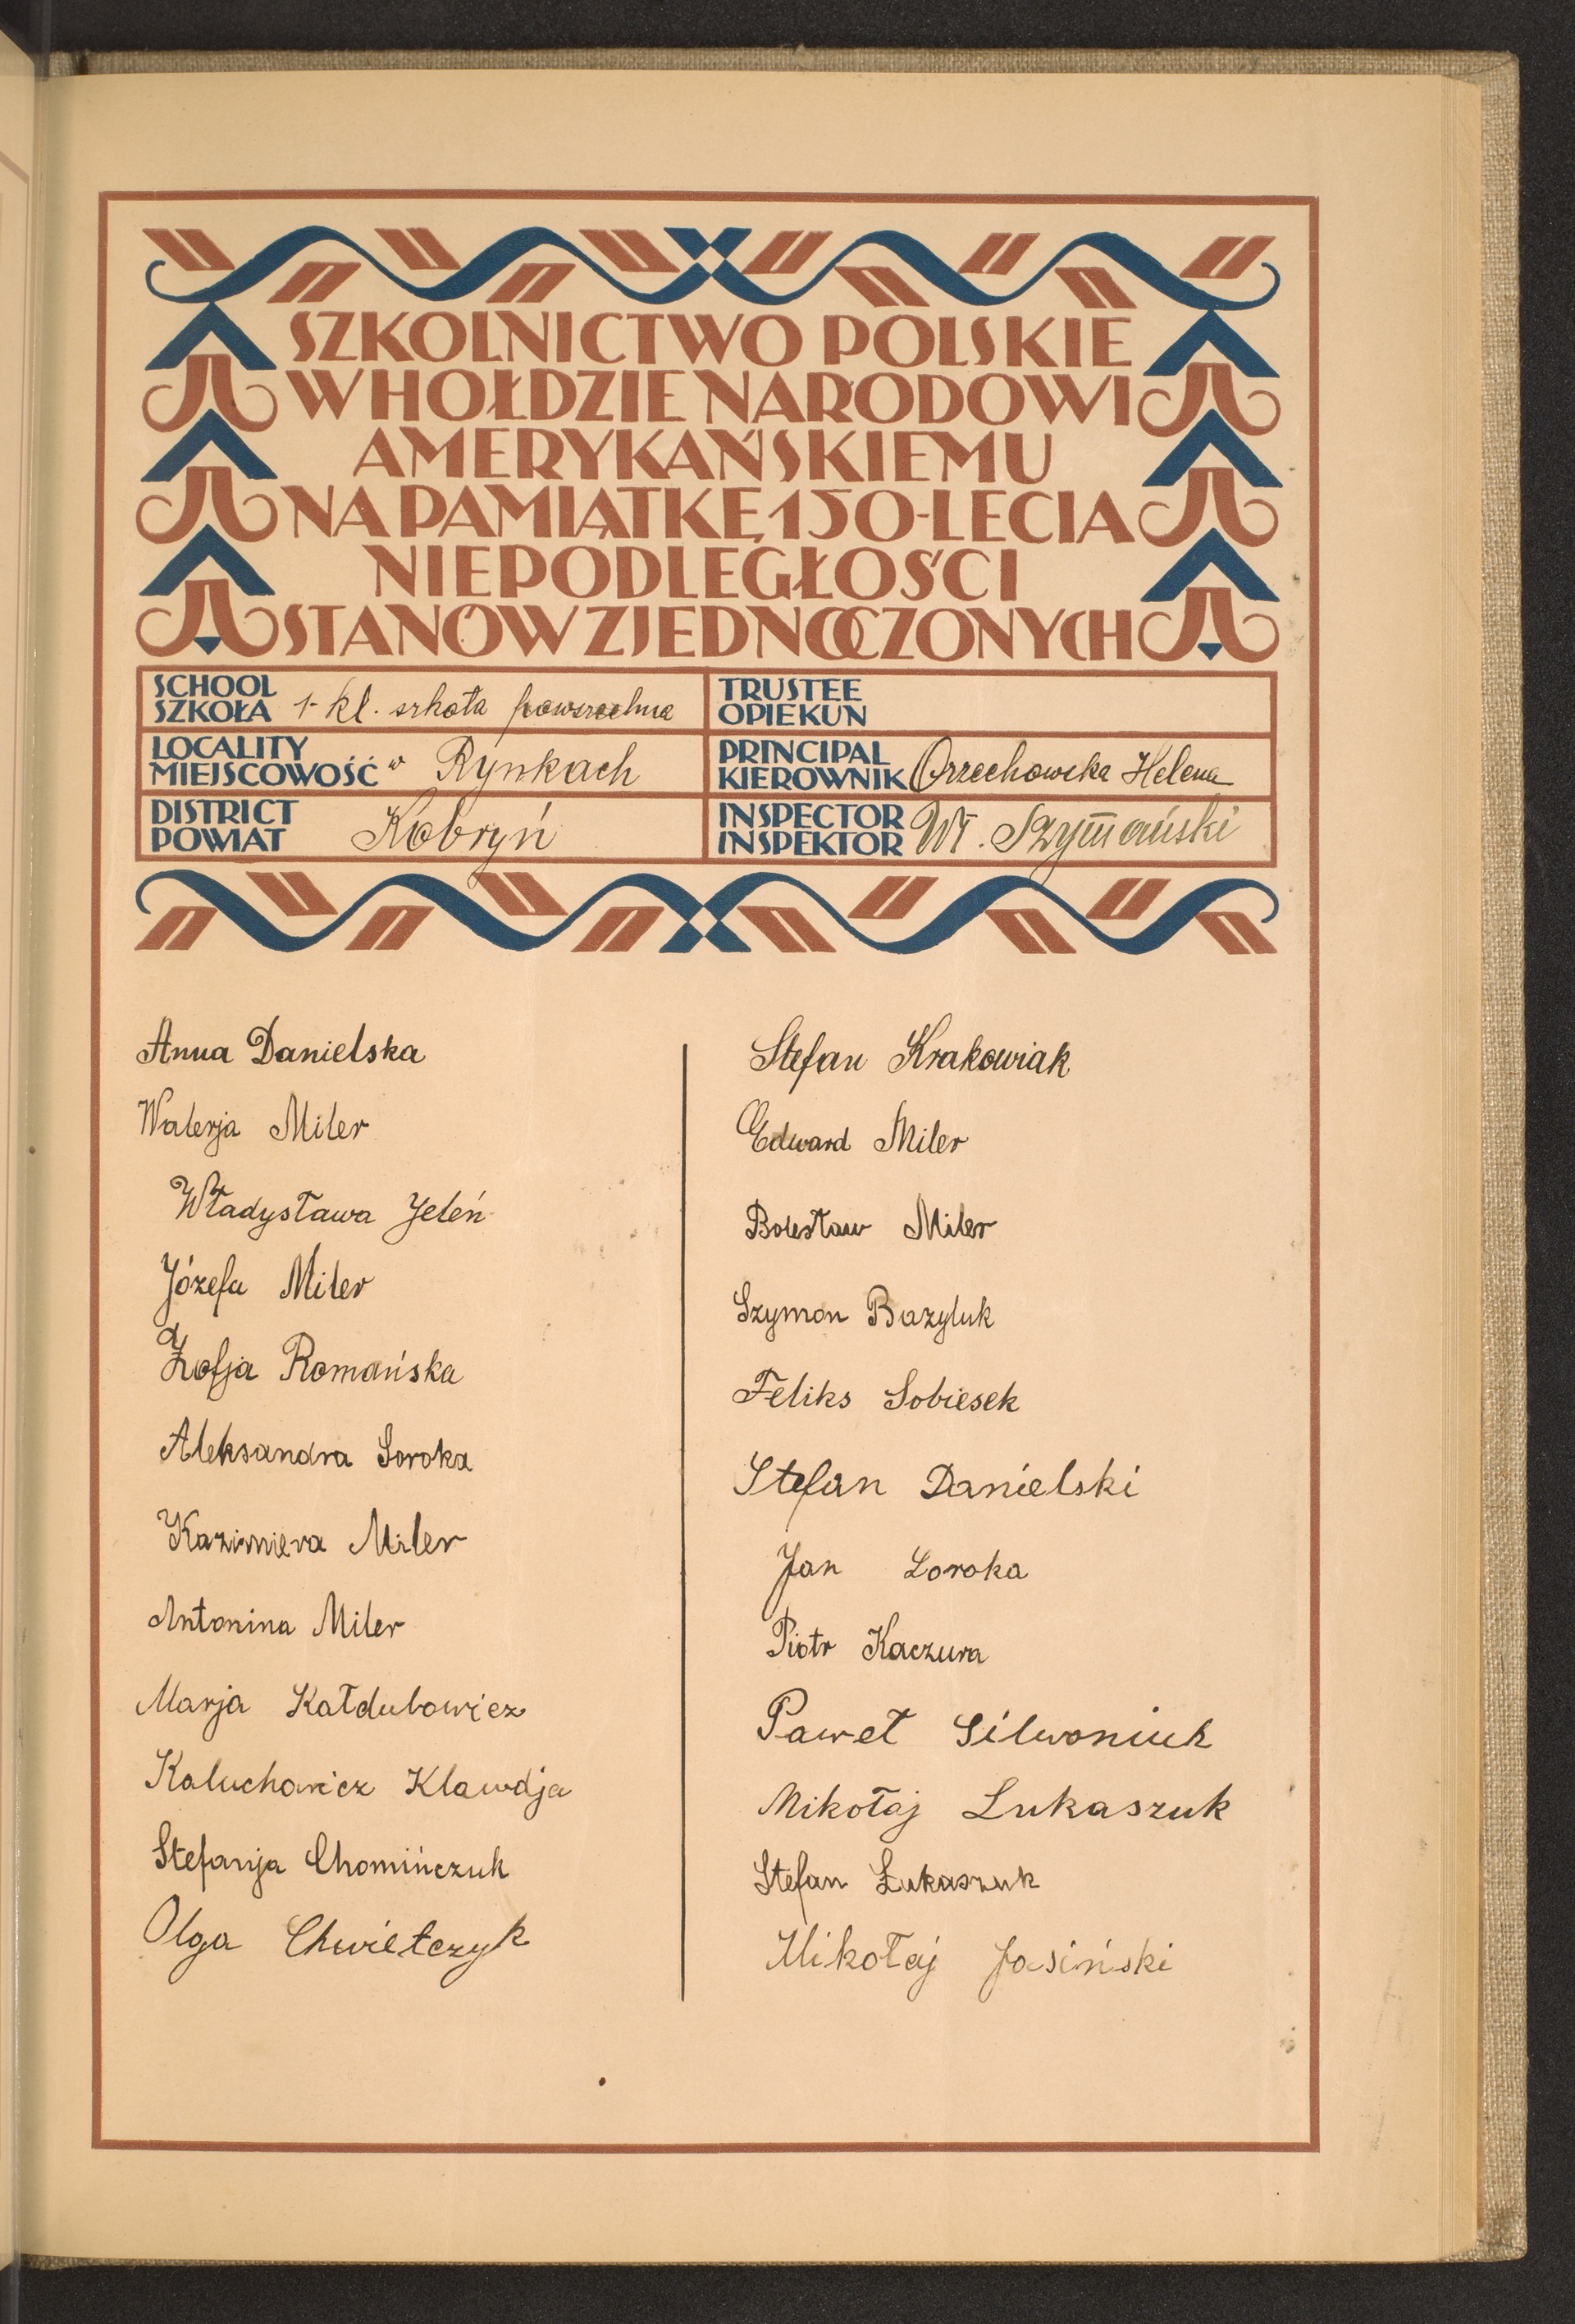 SZKOLNICTWO POLSKIE
W HOŁDZIE NARODOWI
AMERYKAŃSKIEMU
NA PAMIĄTKĘ 150-LECIA
NIEPODLEGŁOŚCI
STANÓW ZJEDNOCZONYCH
SCHOOL
SZKOŁA 1-kl. szkoła powszechna
TRUSTEE
OPIEKUN
LOCALITY
MIEJSCOWOŚĆ w Rynkach
PRINCIPAL
KIEROWNIK Orzechowska Helena
DISTRICT
POWIAT Kobryń
INSPECTOR
INSPEKTOR Wł. Szymański
Anna Danielska
Walerja Miler
Władysława Jeleń
Józefa Miler
Zofja Romańska
Aleksandra Soroka
Kazimiera Miler
Antonina Miler
Marja Kałdubowicz
Kaluchowicz Klawdja
Stefanja Chomińczuk
Olga Chwietczyk
Stefan Krakowiak
Edward Miler
Bolesław Miler
Szymon Bazyluk
Feliks Sobiesek
Stefan Danielski
Jan Soroka
Piotr Kaczura
Paweł Silwoniuk
Mikołaj Lukaszuk
Stefan Łukaszuk
Mikołaj Jasiński